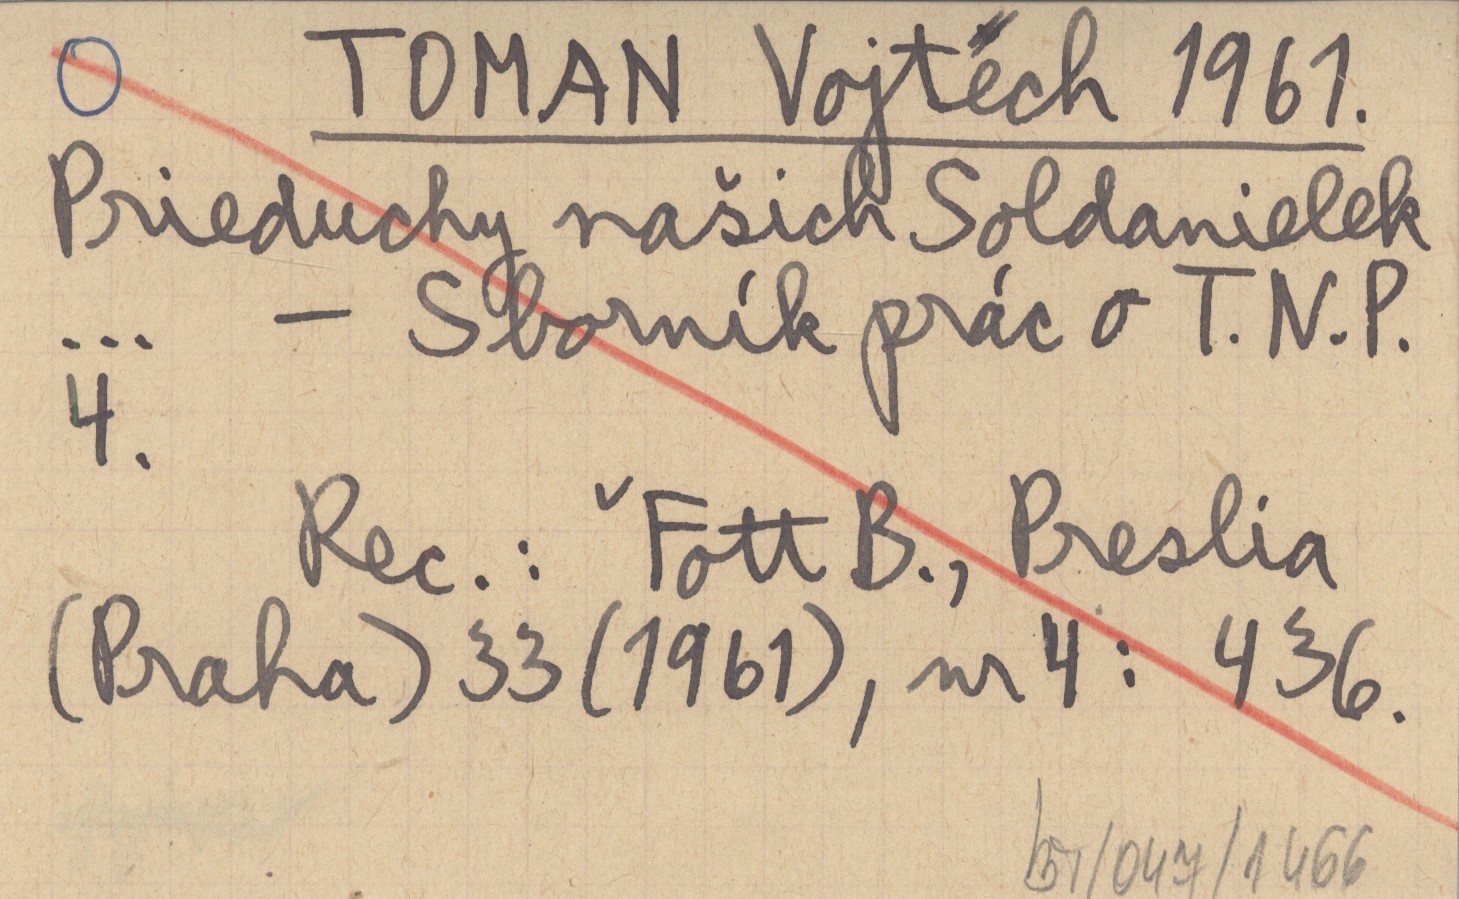 O TOMAN Vojtěch 1961.
Prieduchy našich Soldanielek
... — Sborník prác o T.N.P.
4.
Rec.: ˇFott B., Preslia
(Praha) 33 (1961), nr 4: 436.
/047/1466